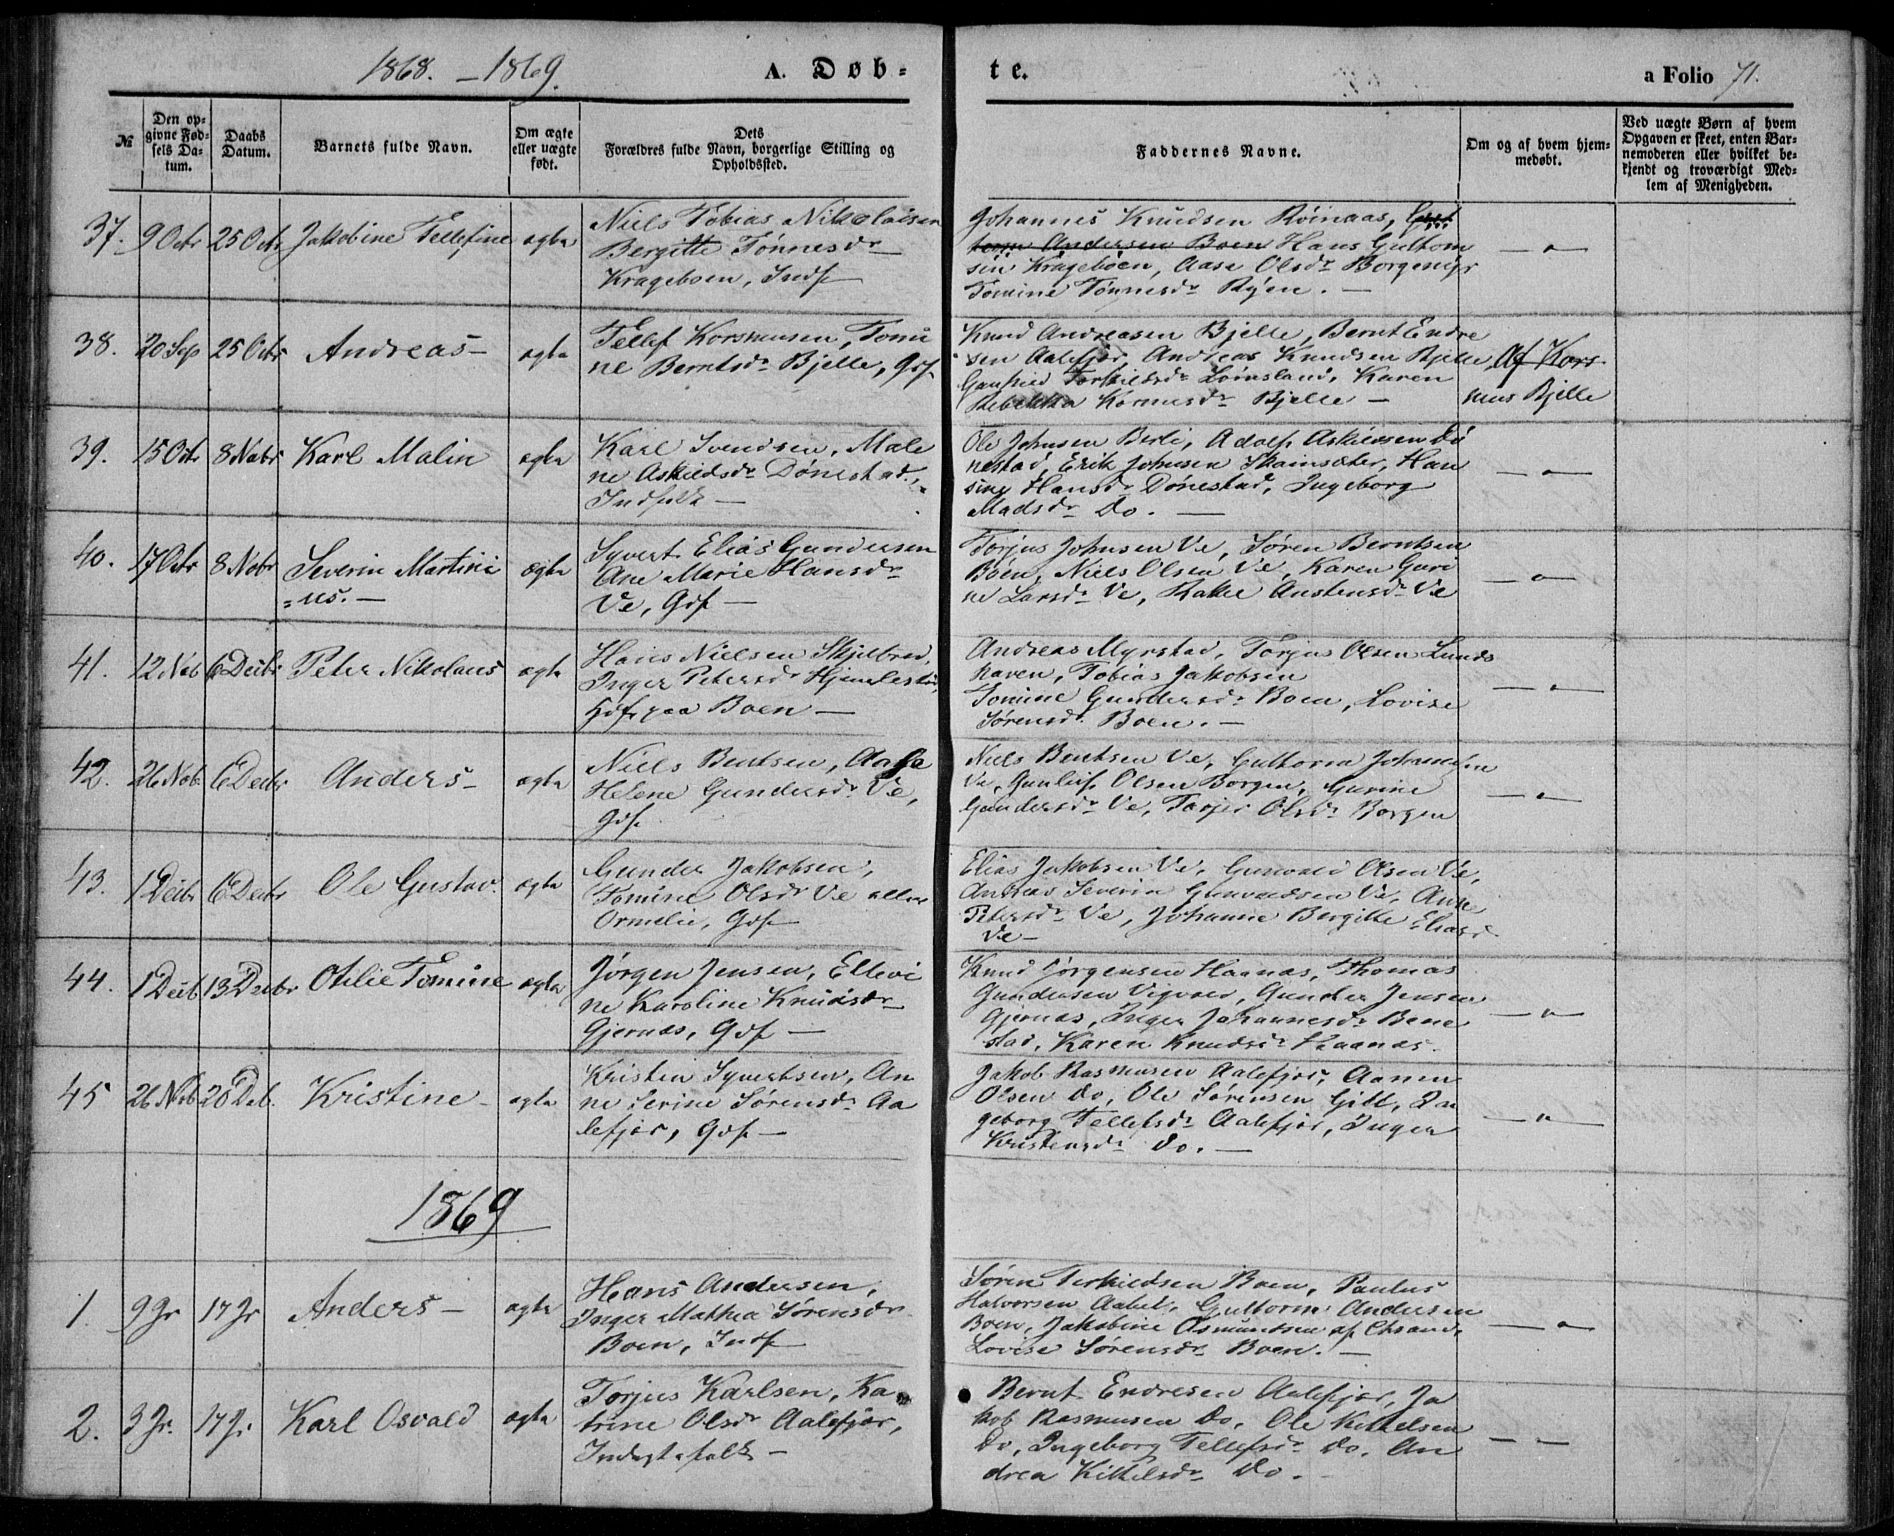 1868. - 1869.
A. Døb-
te.
a Folio 71.
№
Den op-
givne Fød-
sels Da-
tum.
Daabs
Datum.
Barnets fulde Navn.
Om ægte
eller uægte
født.
Dets
Forældres fulde Navn, borgerlige Stilling og
Opholdssted.
Faddernes Navne.
Om og af hvem hjem-
medøbt.
Ved uægte Børn af hvem
Opgaven er skeet, enten Bar-
nemoderen eller hvilket be-
kjendt og troværdigt Med-
lem af Menigheden.
37. 9 Octr 25 Octr Jakobine Tellefine ægte
Niels Tobias Nikolaisen
Bergitte Tønnesdr
Krageboen, Indf
Johannes Knudsen Røinaas,
Andersen Boen Hans Guttorm
sen Krageboen, Aase Olsdr
Tomine Tønnesdr Ryen. —
— " —
38. 20 Sep 25 Octr Andreas — ægte
Tellef Korsmusen, Tomi
ne Berntsdr Bjelle, Gdf
Knud Andreasen Bjelle, Bernt Endre
sen Aalefjær, Andreas Knudsen Bjelle,
Torkildsdr Karen
Rebekka Korsmusdr Bjelle —
Af Kors-
mus Bjelle
39. 15 Octr 8 Nobr Karl Malin ægte
Karl Svendsen, Male
ne Askildsdr Dønestad,
Indfolk —
Ole Johnsen Berli, Adolf Askildsen Dø
nestad, Erik Johnsen Han
sine Hansdr Dønestad, Ingeborg
Madsdr Do. —
— " —
40. 17 Octr 8 Nobr Severin Martini
=us. — ægte
Syvert Elias Gundersen
Ane Marie Hansdr
Ve, Gdf —
Torjus Johnsen Ve, Søren Berntsen
Boen, Niels Olsen Ve, Karen Guri
ne Larsdr Ve, Rakel Austensdr Ve
— " —
41. 12 Nob 6 Decbr Peter Nikolaus ægte
Hans Nielsen Skjelbred,
Inger Petersdr
Hdf paa Boen —
Andreas Myrstad, Torjus Olsen Lunds
haven, Tobias Jakobsen
Tomine Gundersdr Boen, Lovise
Sørensdr Boen. —
— " —
42. 26 Nob. 6 Decbr Anders — ægte
Niels Bentsen, Aase
Helene Gundersdr Ve,
Gdf
Niels Bentsen Ve, Guttorm Johannesen
Ve, Gunleif Olsen Borgen, Gurine
Gundersdr Ve, Torjer Olsdr Borgen
— " —
43. 1 Decbr 6 Decbr Ole Gustav. ægte
Gunder Jakobsen,
Tomine Olsdr Ve eller
Ormelie, Gdf —
Elias Jakobsen Ve, Gunvald Olsen Ve,
Andreas Severin Gunvaldsen Ve, Anne
Petersdr Ve, Johanne Bergitte Eliasd
Ve —
44. 1 Decb 13 Decbr Otilie Tomine ægte
Jørgen Jensen, Ellevi
ne Karoline Knudsdr
Gjernæs, Gdf —
Knud Jørgensen Haanas, Thomas
Gundersen Vigvold, Gunder Jensen
Gjernæs, Inger Johannesdr Bene
stad, Karen Knudsdr Haanas.
— " —
45 26 Nob 28 Deb. Kristine — ægte
Kristen Syvertsen, An
ne Serine Sørensdr Aa
lefjær, Gdf —
Jakob Rasmusen Aalefjær, Aanen
Olsen Do, Ole Sørensen Gill, In
geborg Tellefsdr Aalefjær, Inger
Kristensdr Do. —
— " —
1869
1. 9 Jr 17 Jr Anders — ægte
Hans Andersen,
Inger Mathea Sørensdr
Boen, Indf —
Søren Terkildsen Boen, Paulus
Halvorsen Guttorm Andersen
Boen, Jakobine Osmundsen af Chrsand,
Lovise Sørensdr Boen. —
— " —
2. 3 Jr. 17 Jr Karl Osvald ægte
Torjus Karlsen, Ka
trine Olsdr Aalefjær,
Inderstefolk —
Bernt Endresen Aalefjær, Ja
kob Rasmusen Do, Ole Kittelsen
Do, Ingeborg Tellefsdr Do, An
drea Kittelsdr Do. —
— —